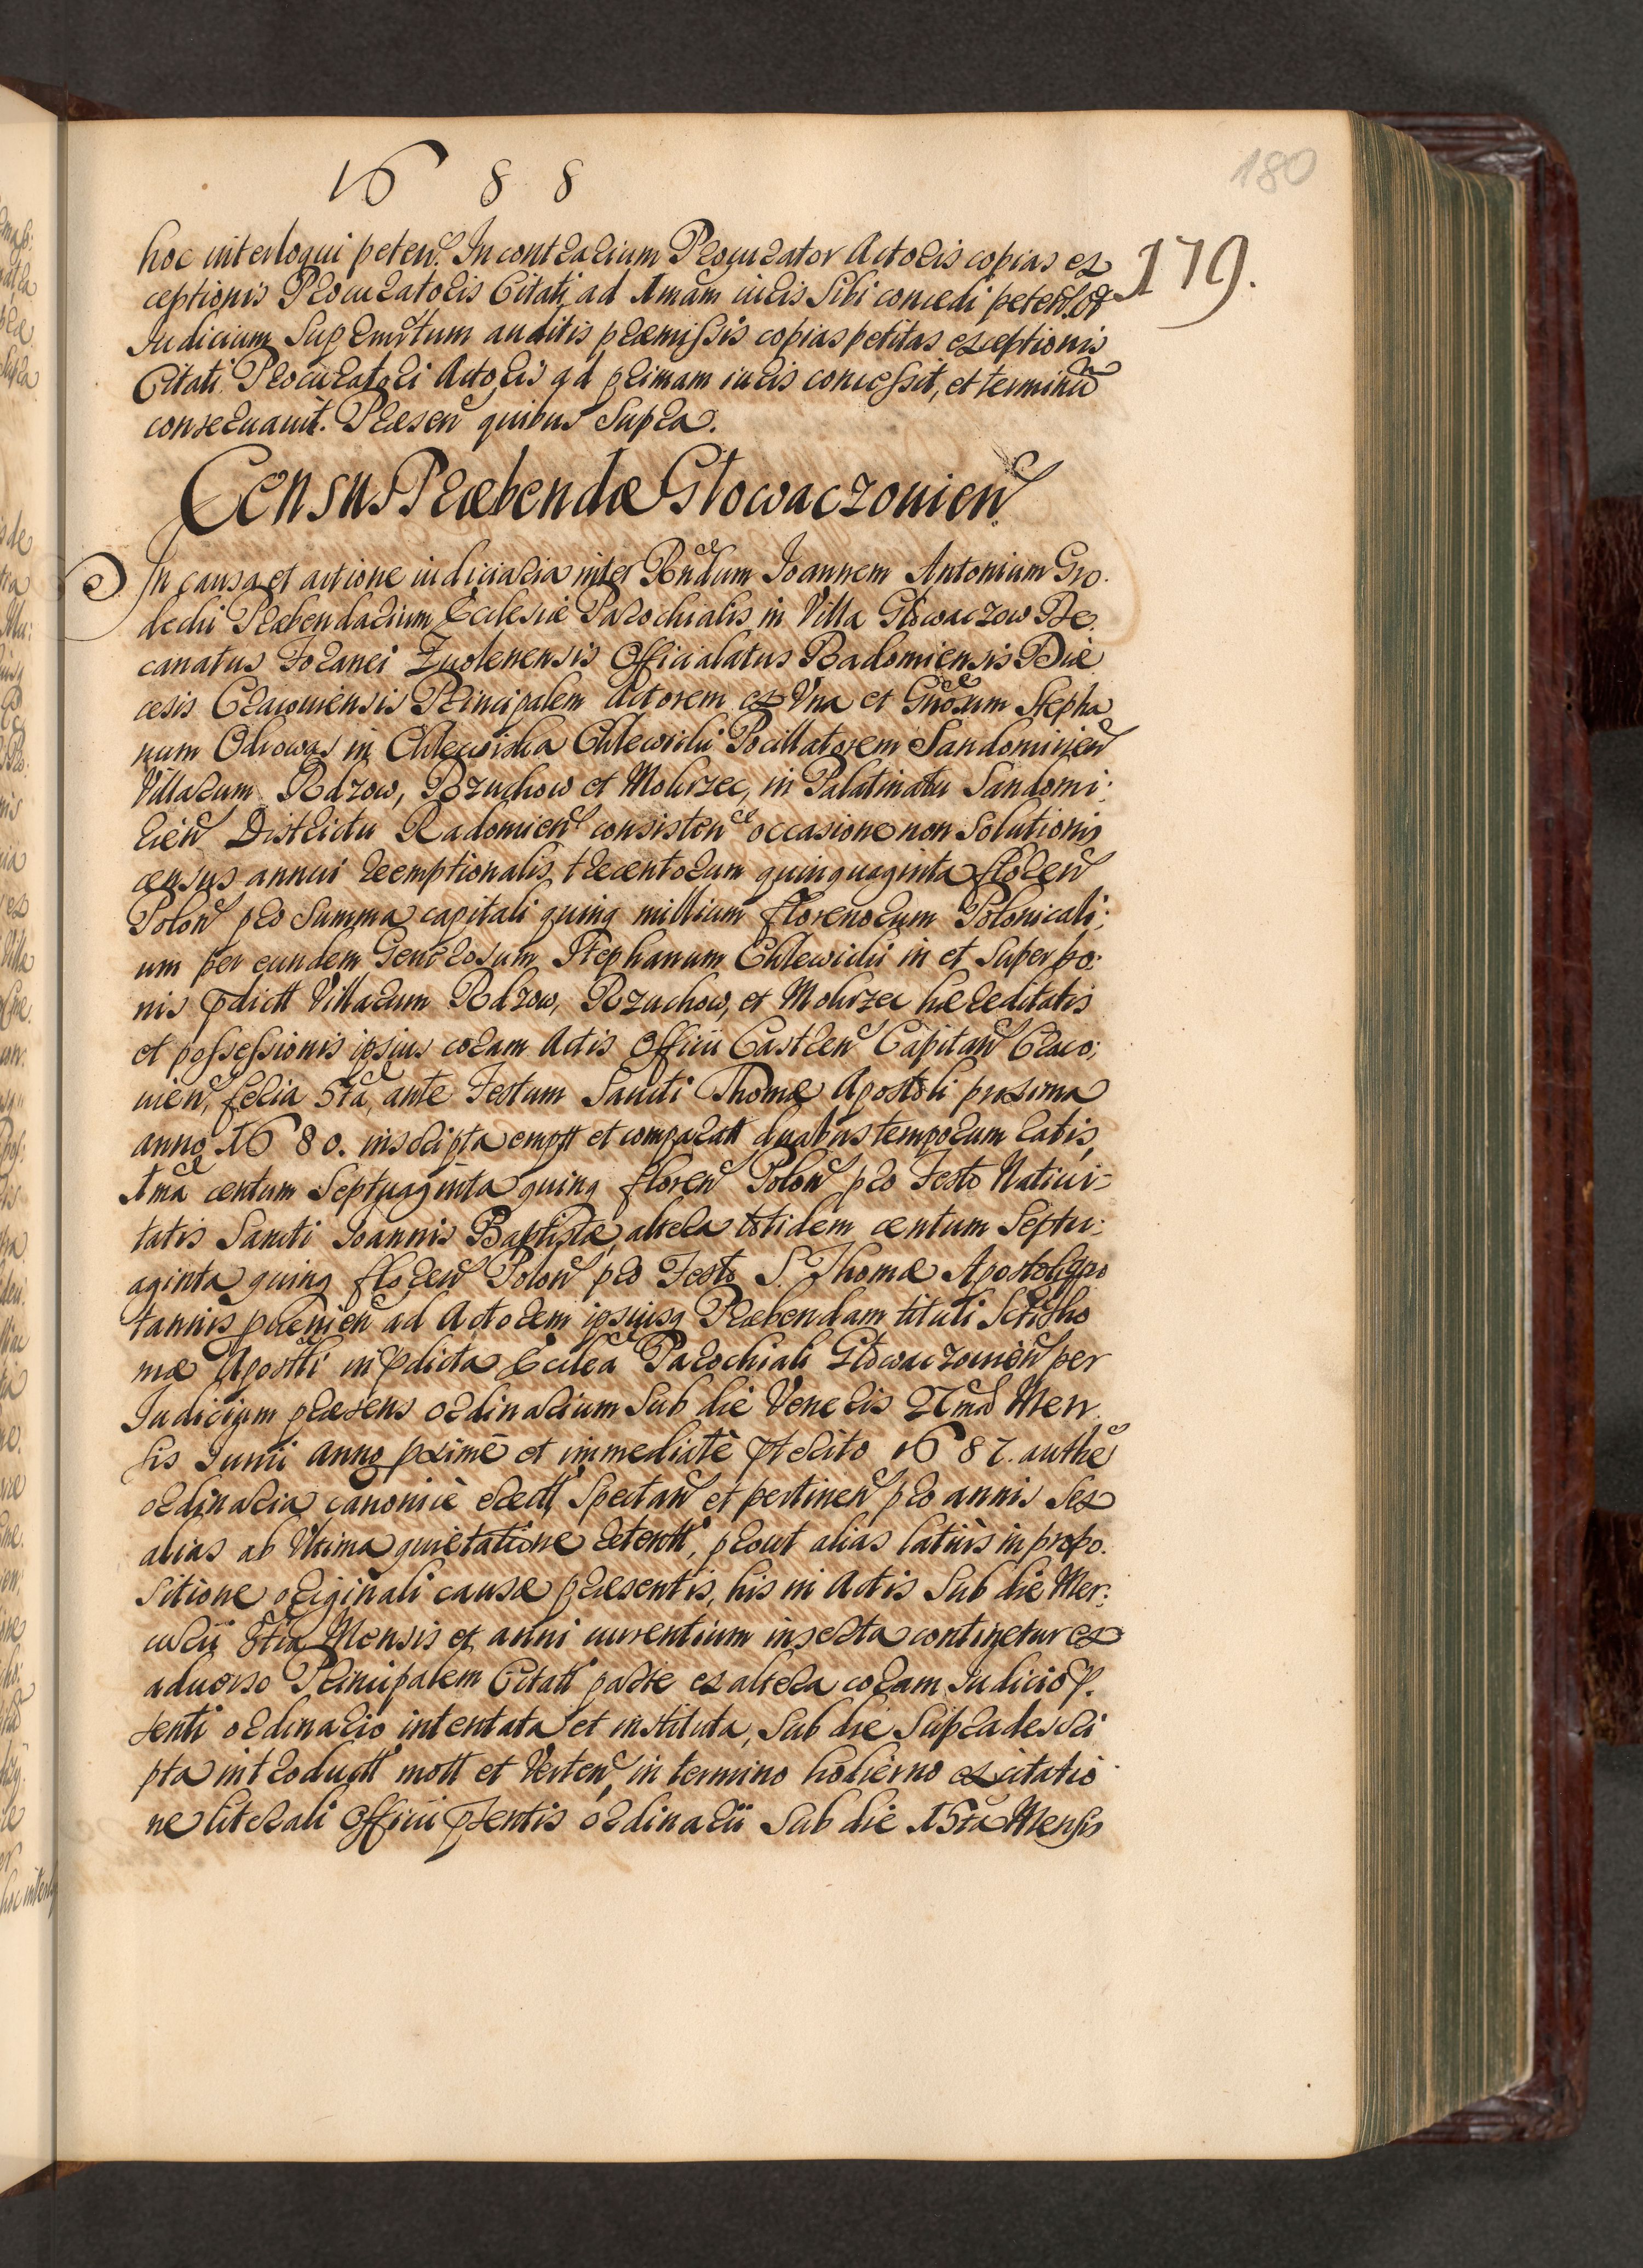 1688
180
179.
hoc interloqui peten. In contrarium Procurator Actoris copias ex
ceptionis Procuratoris Citati ad 1mam iuris Sibi concedi peten. Et
Iudicium Suprmtum auditis præmissis copias petitas exceptionis
Citati Procuratori Actoris ad primam iuris concessit, et terminū
conseruauit. Præsen quibus Supra.
Census Præbendæ Głowaczouien
In causa et actione iudiciaria inter Rndum Ioannem Antonium Gro-
decki Præbendarium Ecclesiæ Parochialis in Villa Głowaczow De-
canatus Foranei Zuolenensis Officialatus Radomiensis Diæ
cesis Cracouiensis Principalem Actorem ex Vna et Gnosum Stepha
num Odrowąs in Chlewiska Chlewicki Pocillatorem Sandomirien
Villarum Rdzow, Rzuchow et Mokrzec, in Palatinatu Sandomi:
rien Districtu Radomien consisten occasione non Solutionis
census annui reemptionalis trecentorum quinquaginta floren
Polon pro Summa capitali quinq millium florenorum Polonicali:
um per eundem Generosum Stephanum Chlewicki in et Super bo:
nis pdictt Villarum Rdzow, Rzuchow, et Mokrzec hæreditatis
et possessionis ipsius coram Actis Officii Castren Capitan Craco:
uien, feria 5ta ante Festum Sancti Thomæ Apostoli proxima
anno 1680. inscripta emptt et comparatt duabus temporum ratis,
1ma centum Septuaginta quinq floren Polon pro Festo Natiui-
tatis Sancti Ioannis Baptistæ, altera totidem centum Septu:
aginta quinq floren Polon pro Festo S. Thomæ Apostoli quo
tannis prouenien ad Actorem ipsiusq Præbendam tituli Scti Tho
mæ Apostli in pdicta Ecclea Parochiali Głowaczouien per
Iudicium præsens ordinarium Sub die Veneris 27ma Men
sis Iunii anno proximè et immediatè pterito 1687. authe
ordinaria canonicè erectt Spectan et pertinen pro annis Sex
alias ab Vltima quietatione retentt, prout alias latiùs in propo-
sitione originali causæ præsentis, his in Actis Sub die Mer:
curii 8tia Mensis et anni currentium inserta continetur ex
aduerso Principalem Citatt parte ex altera coram Iudicio p-
senti ordinario intentata et instituta, Sub die Supradescri
pta introductt mott et Verten, in termino hodierno ex citatio
ne literali Officii psentis ordinarii Sub die 15ta Mensis